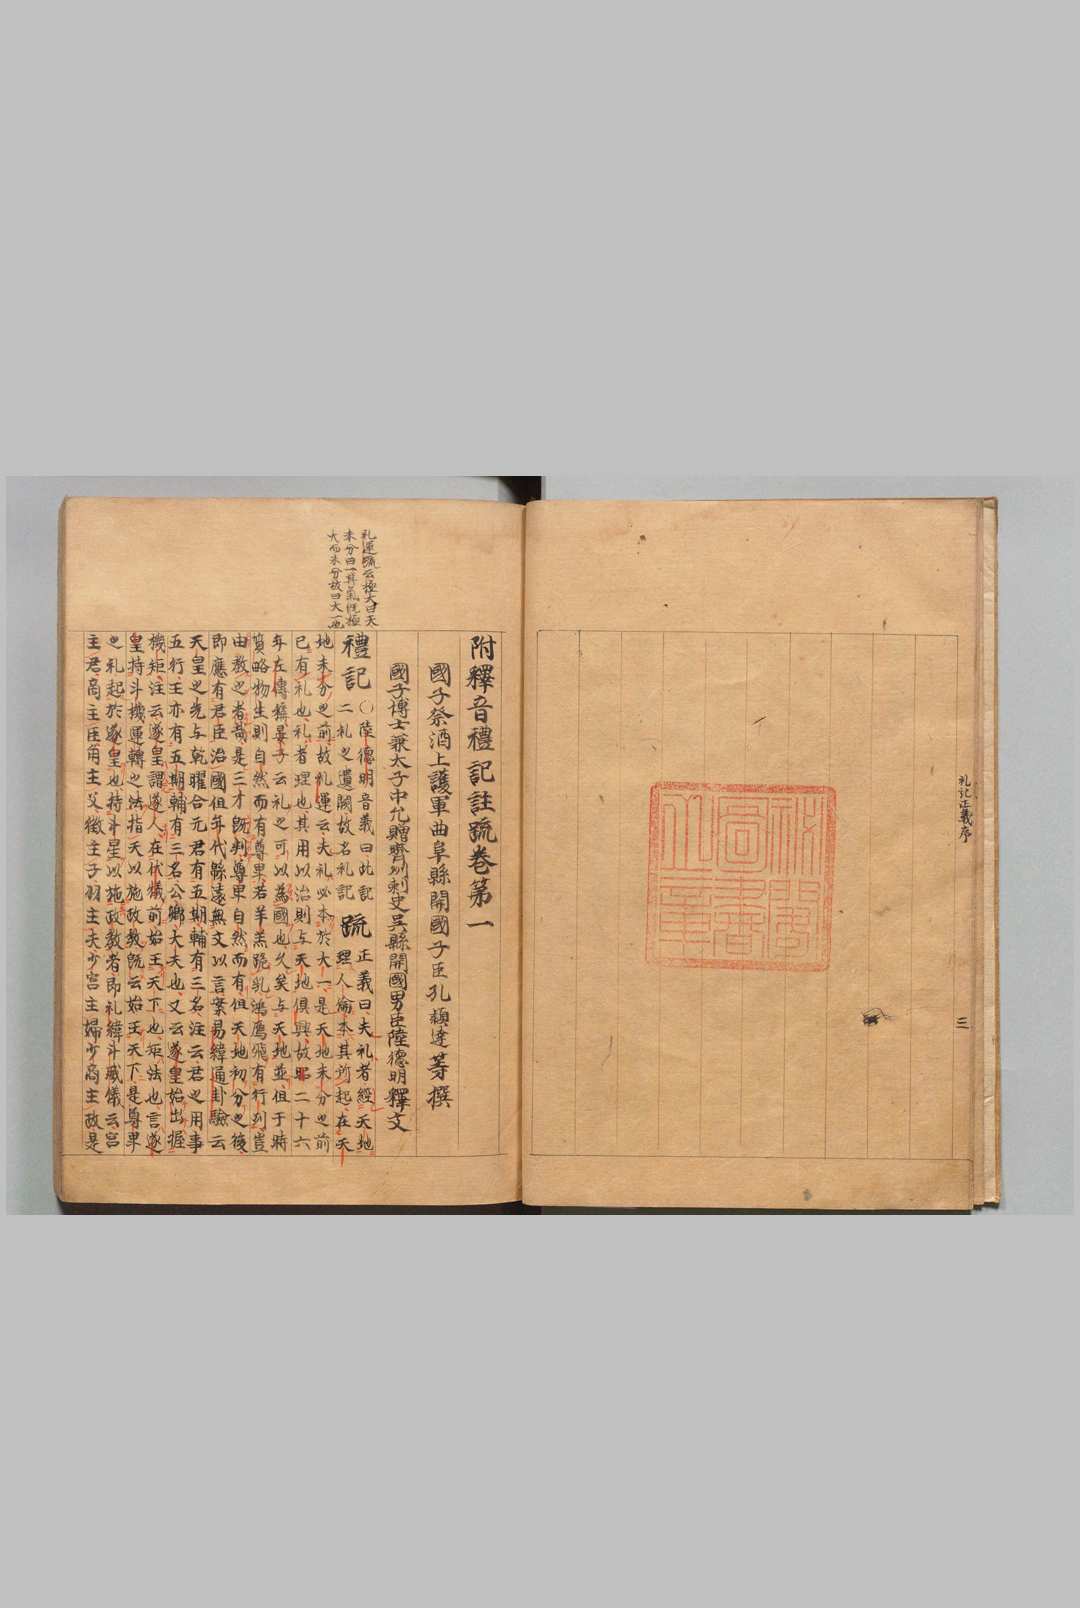 礼記正義序
三
秘閣
圖書
之章
附釋音禮記註疏卷第一
國子祭酒上護軍曲阜縣開國子臣孔穎達等撰
國子博士兼太子中允贈齊州刺史吳縣開國男臣陸德明釋文
礼運疏云極大曰天
未分曰一其氣既極
大而未分故曰大一也
禮記
〇陸德明音義曰此記
二礼之遺闕故名礼記
疏
正義曰夫礼者經天地
理人倫本其所起在天
地未分之前故礼運云夫礼必本於大一是天地未分之前
已有礼也礼者理也其用以治則与天地俱興故昭二十六
年左傳稱晏子云礼之可以為國也久矣与天地並但于時
質略物生則自然而有尊卑若羊羔跪乳鴻鴈飛有行列豈
由教之者哉是三才既判尊卑自然而有但天地初分之後
即應有君臣治國但年代緜遠無文以言案易緯通卦驗云
天皇之先与乾曜合元君有五期輔有三名注云君之用事
五行王亦有五期輔有三名公卿大夫也又云遂皇始出握
機矩注云遂皇謂遂人在伏犧前始王天下也矩法也言遂
皇持斗機運轉之法指天以施政教既云始王天下是尊卑
之礼起於遂皇也持斗星以施政教者即礼緯斗威儀云宮
主君商主臣角主父徵主子羽主夫少宮主婦少商主政是